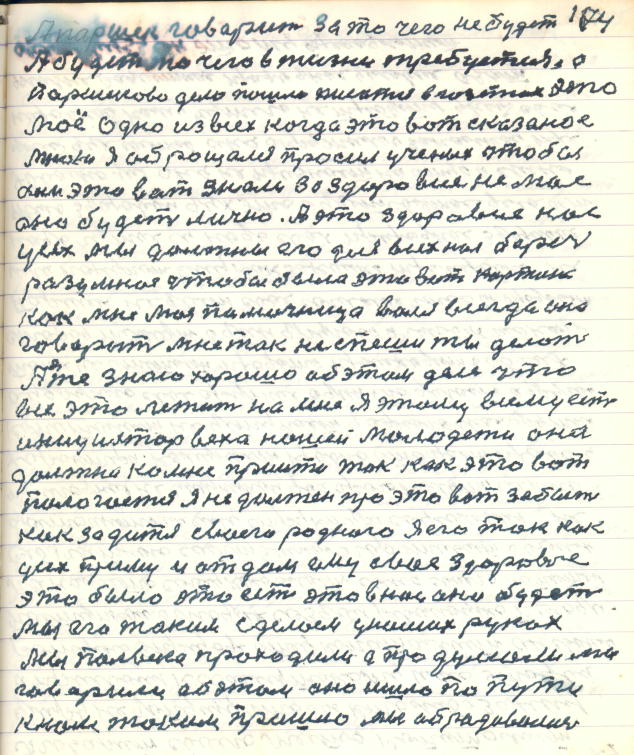 А паршек говорит за то чего не будет 174
А будет то чего в жизни требуется. а
Паршеково дело пошло писатся в газетах Это
Моё одно из всех когда это вот сказаное
Я оброщался просил ученых чтобы
они это вот знали За здоровие не мое
оно будет лично. А это здоровие нас
усех мы должны его для всех нас береч
разумное чтобы была это вот картина
как мне моя памочница валя всегда она
говорит мне так не спеши ты делать
А я те знаю хорошо об этом деле что
все это лежит на мне Я этому всему есть
инициятор века нашей Молодежи она
должна ко мне прийти так как это вот
пологается я не должен про это вот забыть
как за дитя своего родного Я его так как
усех приму и отдам ему свое здоровье
это было это есть это в нас оно будет
мы его таким сделоем у наших руках
Мы полвека проходили а продумали мы
говорили об этом оно шло по пути
к нам таким пришло мы обрадовались